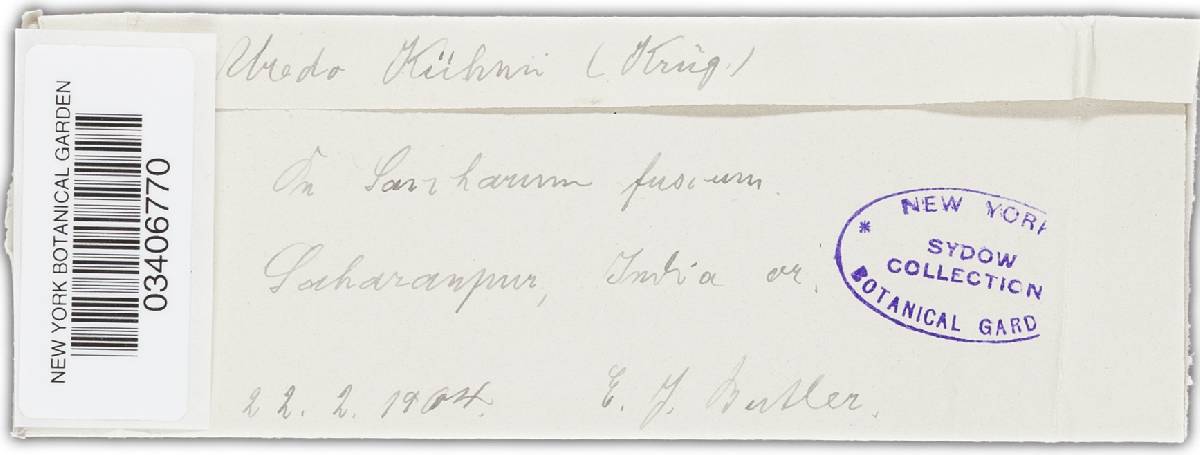 NEW YORK BOTANICAL GARDEN
03406770
Uredo Kühnii (Krüg.)
On Saccharum fuscum.
Saharanpur, India or.
22. 2. 1904. E. J. Butler.
NEW YORK
SYDOW
COLLECTION
BOTANICAL GARD
*